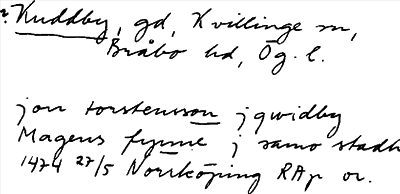 Kuddby, gd, Kvillinge sn,
Bråbo hd, Ög. l.
jon torstensson j qwidby
Magens fynne j samo stadh
1474 27/5 Norrköping RAp or.